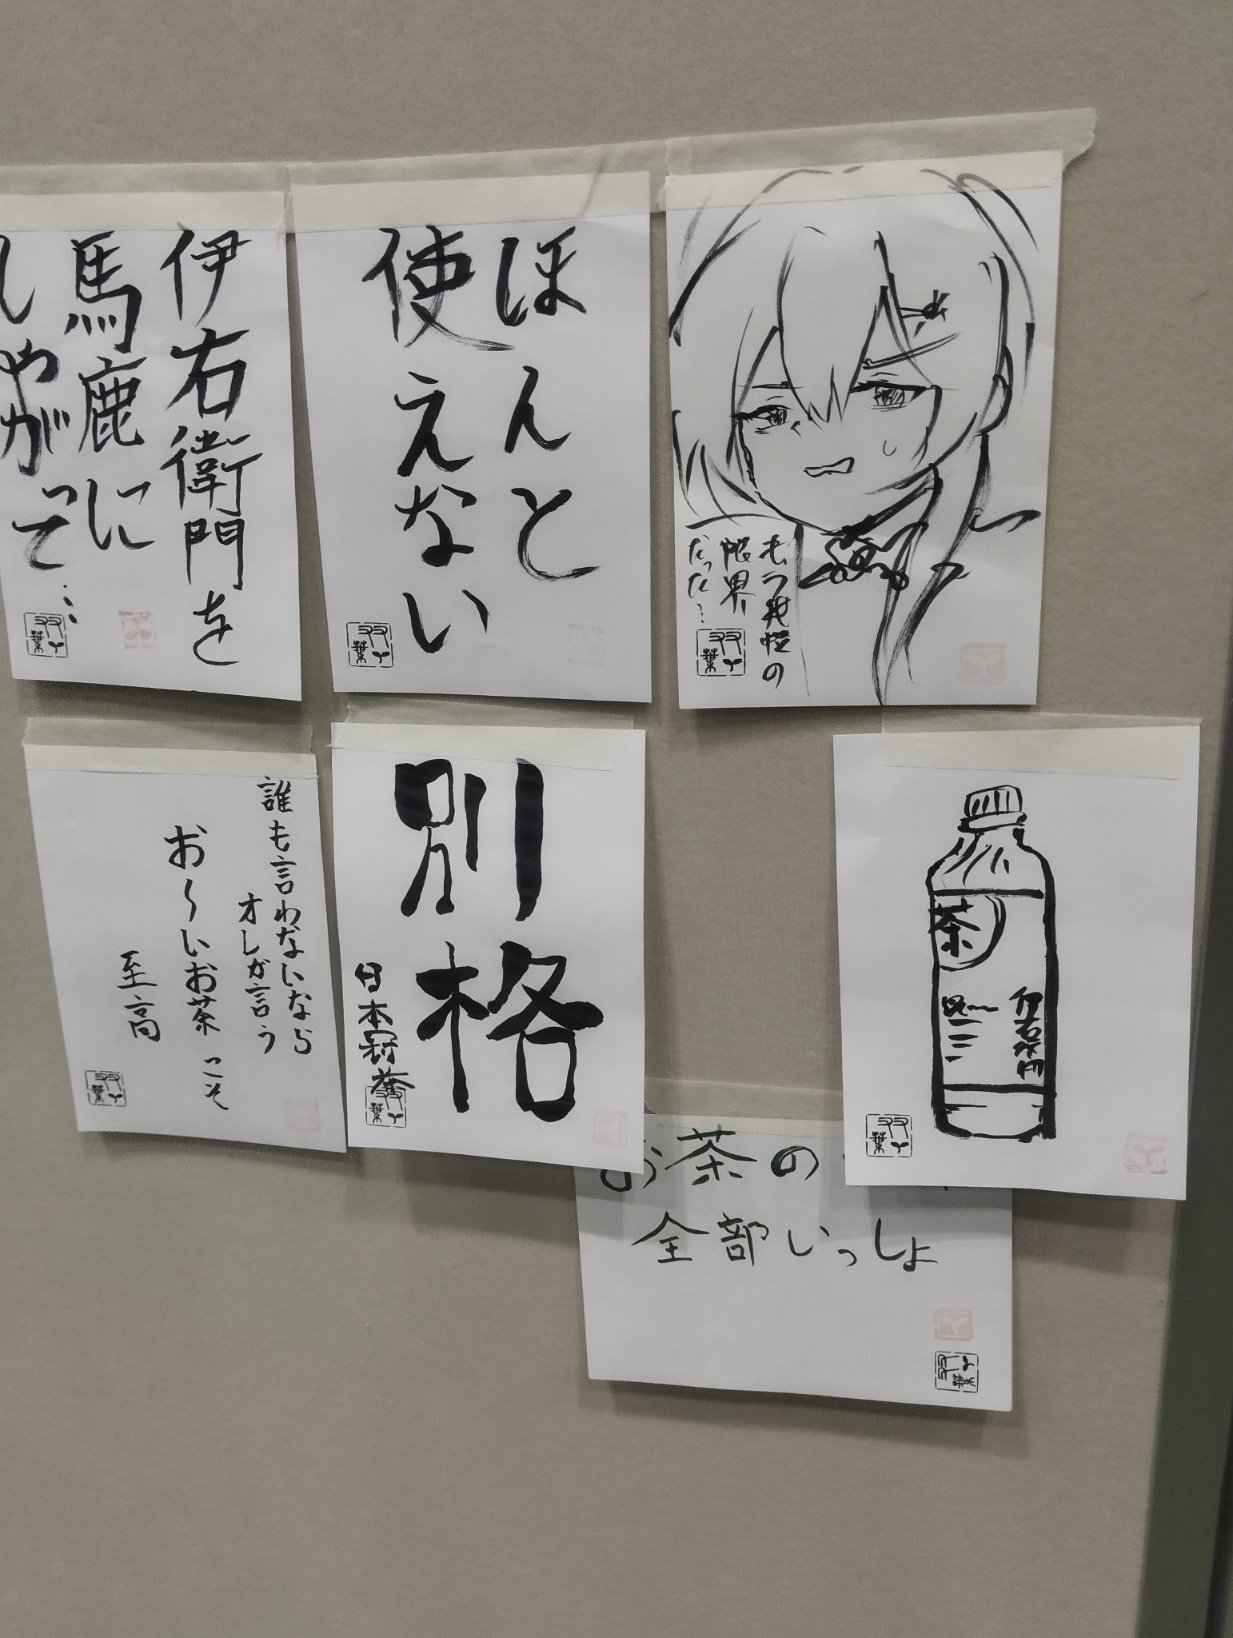 伊右衛門を
馬鹿に
しやがって…
ほんと
使えない
もう我慢の
限界
だった…
誰も言わないなら
オレが言う
お〜いお茶こそ
至高
別格
日本冠茶
茶
伊右衛門
お茶の
全部いっしょ
双葉
双葉
双葉
双葉
双葉
双葉